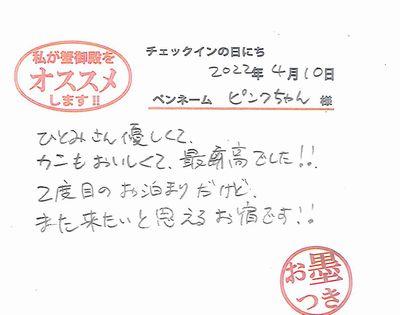 私が蟹御殿を
オススメ
します!!
チェックインの日にち
2022年4月10日
ペンネーム ピンクちゃん 様
ひとみさん優しくて、
カニもおいしくて、最高でした!!
2度目のお泊まりだけど、
また来たいと思えるお宿です!!
お墨
つき